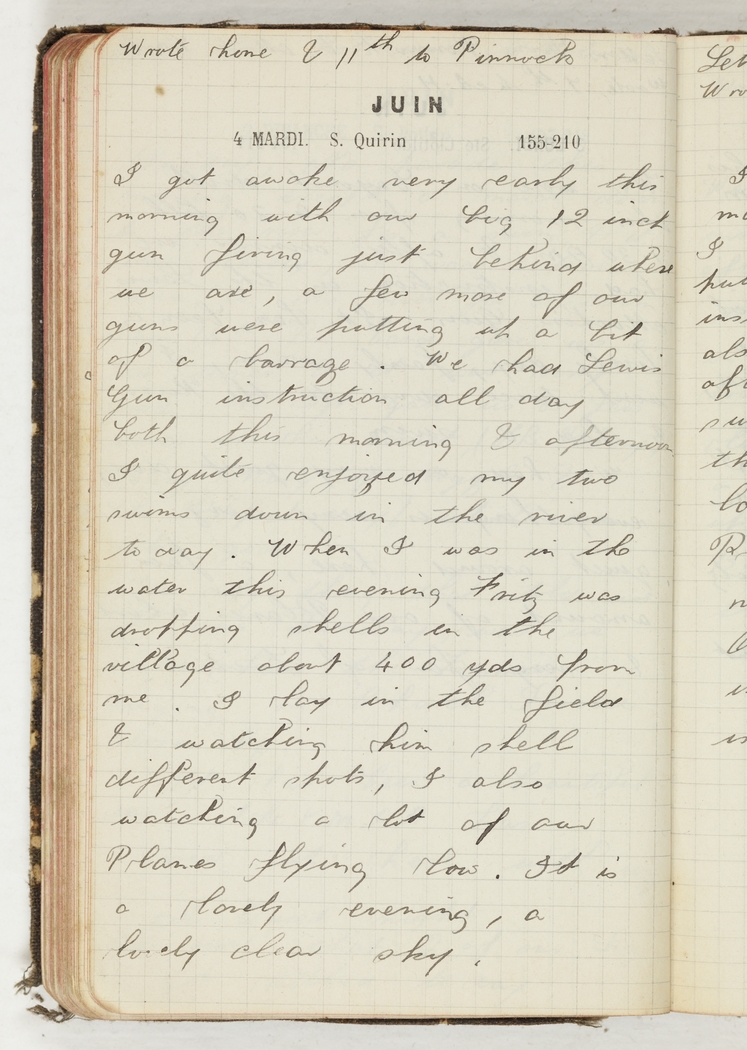 Wrote home & 11th to Pinnock
JUIN
4 MARDI. S. Quirin 155-210
I got awoke very early this
morning with our big 12 inch
gun firing just behind where
we are, a few more of our
guns were putting up a bit
of a barrage. We had Lewis
Gun instruction all day
both this morning & afternoon
I quite enjoyed my two
swims down in the river
today. When I was in the
water this evening Fritz was
dropping shells in the
village about 400 yds from
me. I lay in the field
& watching him shell
different spots, I also
watching a lot of our
Planes flying low. It is
a lovely evening, a
lovely clear sky.